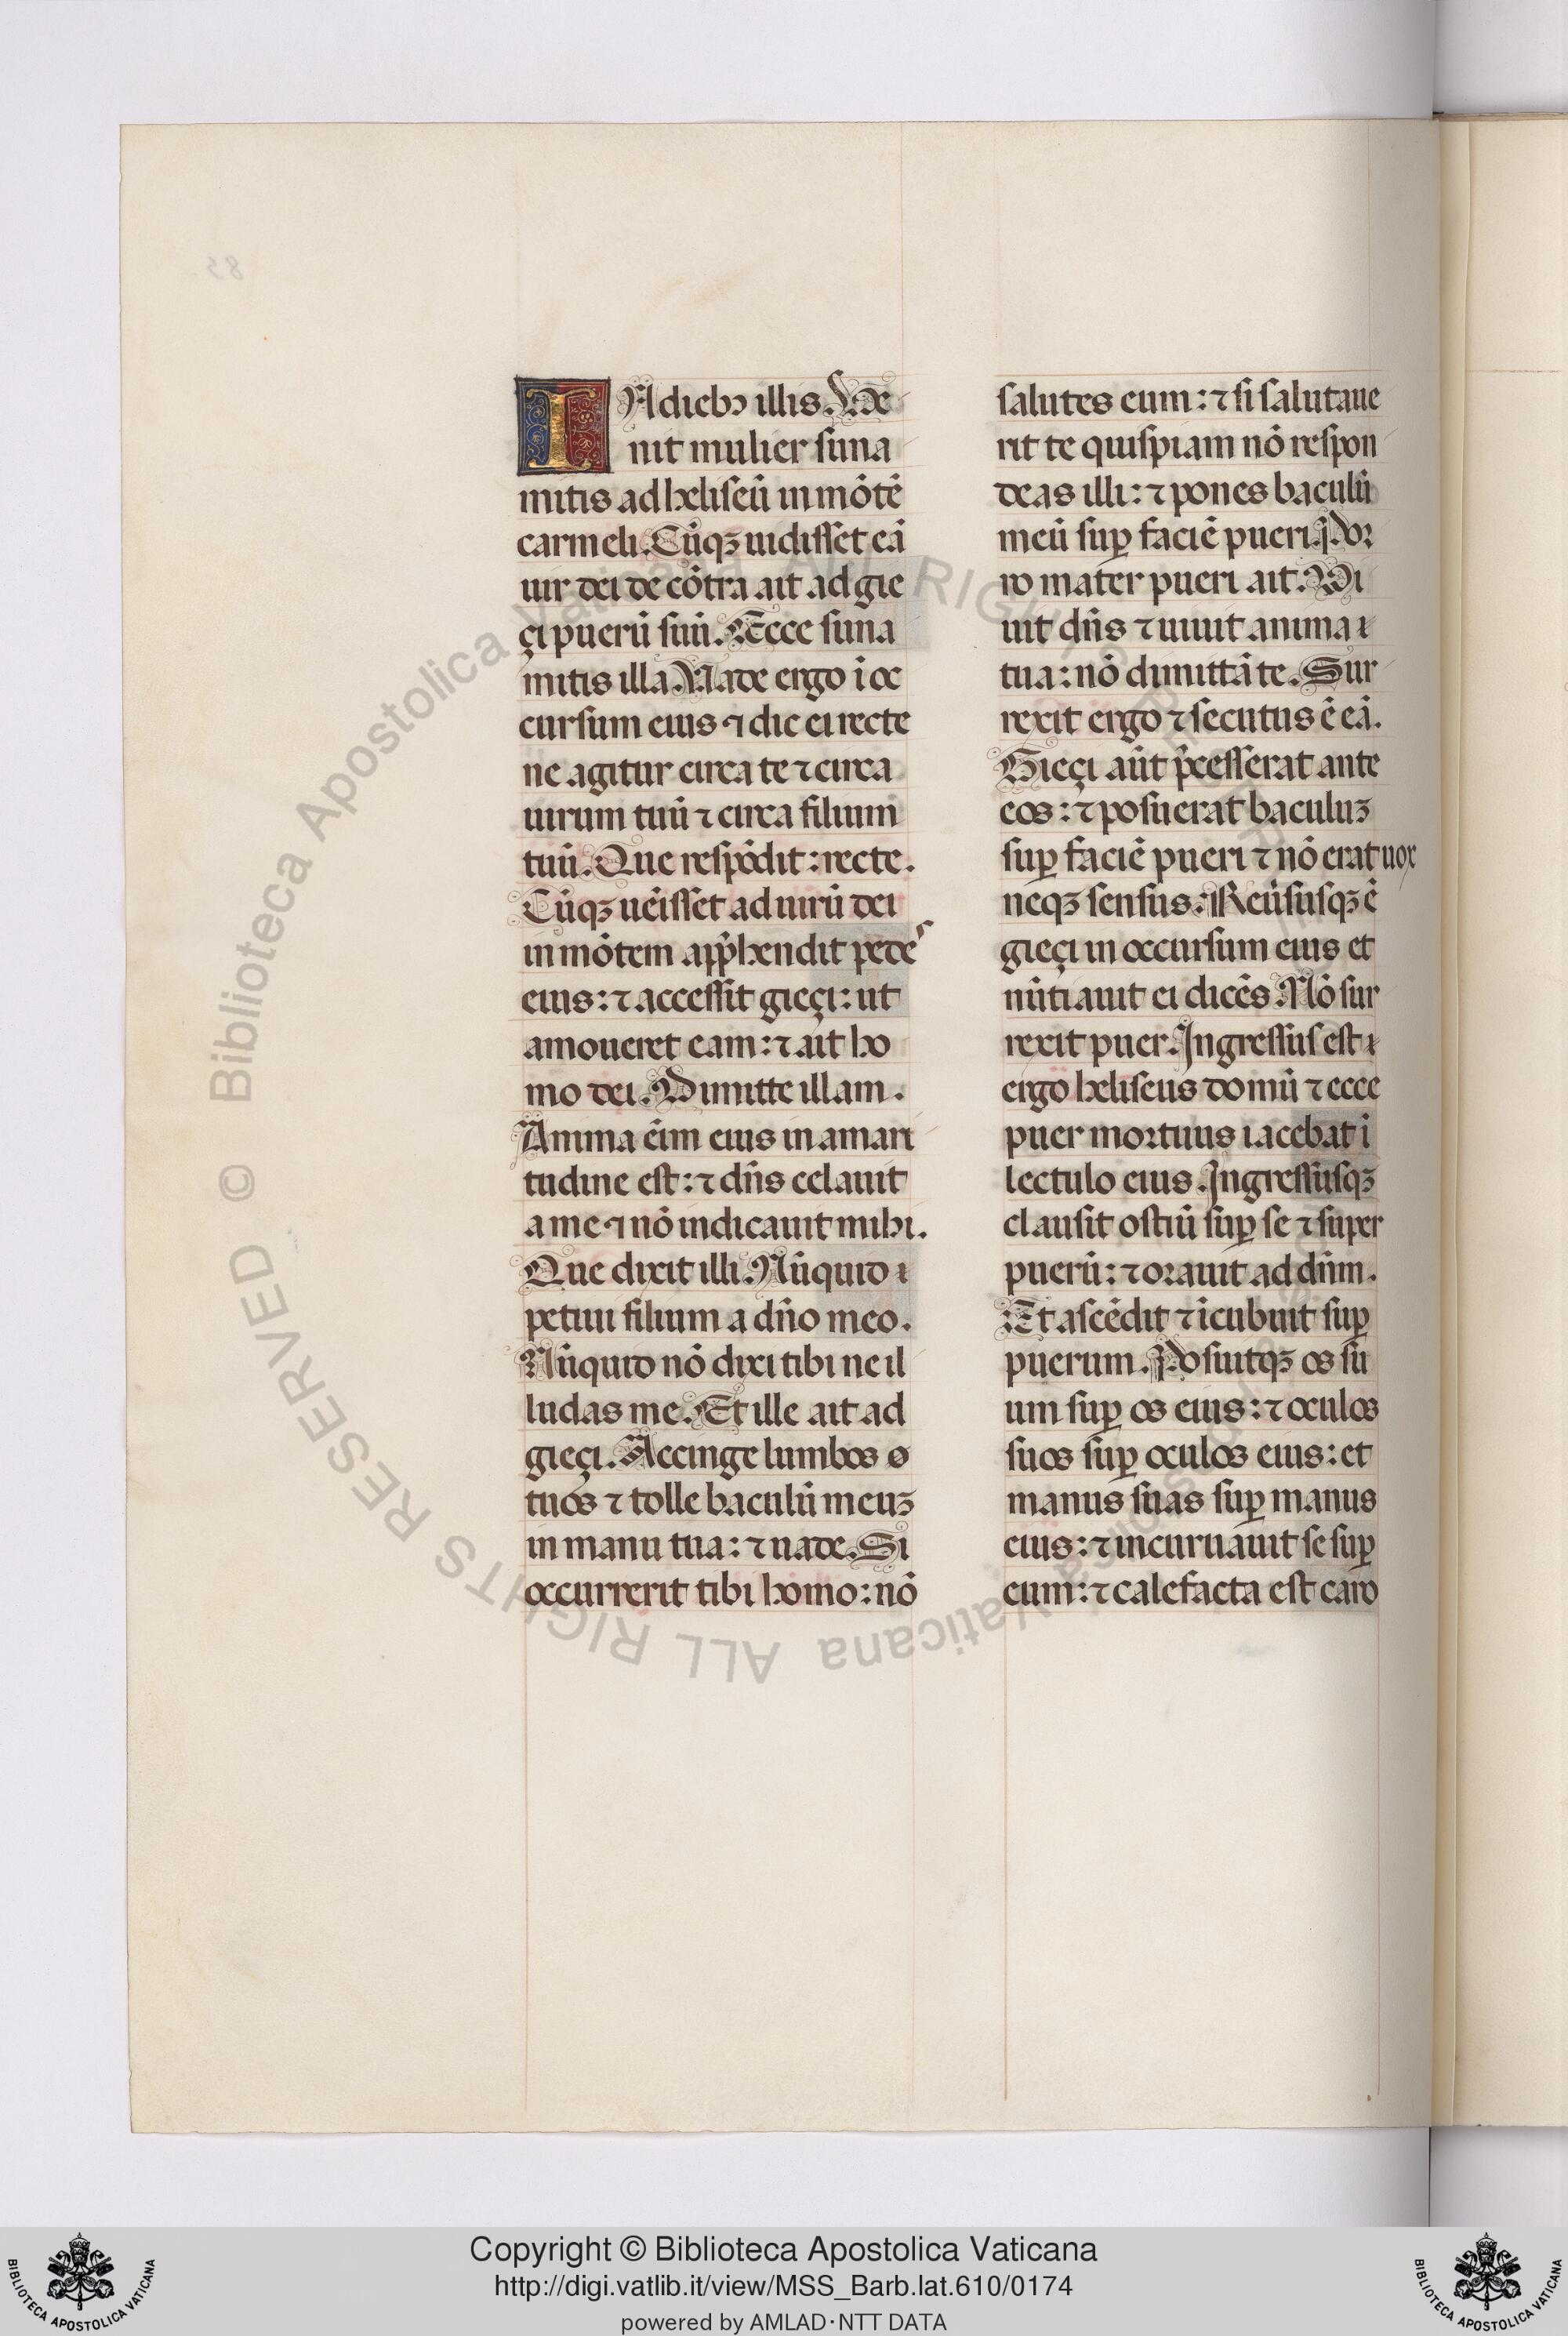 IN diebꝰ illis. Ue
nit mulier suna
mitis ad heliseū in mōtē
carmeli. Cūqꝫ uidisset eā
uir dei de cōtra ait ad gie
çi puerū suū. Ecce suna
mitis illa. Vade ergo ī oc
cursum eius ⁊ dic ei recte
ne agitur circa te ⁊ circa
uirum tuū ⁊ circa filium
tuū. Que respōdit: recte.
Cūqꝫ uēisset ad uirū dei
in mōtem app̄hendit pedeˢ
eius: ⁊ accessit gieçi: ut
amoueret eam: ⁊ ait ho
mo dei. Dimitte illam.
Anima eīm eius in amari
tudine est: ⁊ dn̄s celauit
a me ⁊ nō indicauit mihi.
Que dixit illi. Nūquid
petiui filium a dn̄o meo.
Nūquid nō dixi tibi ne il
ludas me. Et ille ait ad
gieçi. Accinge lumbos
tuos ⁊ tolle baculū meuꝫ
in manu tua: ⁊ uade. Si
occurrerit tibi homo: nō
salutes eum: ⁊ si salutaue
rit te quispiam nō respon
deas illi: ⁊ pones baculū
meū suꝑ faciē pueri. Por
ro mater pueri ait. Vi
uit dn̄s ⁊ uiuit anima
tua: nō dimittā te. Sur
rexit ergo ⁊ secutus ē eā.
Gieçi aūt p̄cesserat ante
eos: ⁊ posuerat baculuꝫ
suꝑ faciē pueri ⁊ nō erat uox
neqꝫ sensus. Reūsusqꝫ ē
gieçi in occursum eius et
nūtiauit ei dicēs. Nō sur
rexit puer. Ingressus est
ergo heliseus domū ⁊ ecce
puer mortuus iacebat ī
lectulo eius. Ingressusqꝫ
clausit ostiū suꝑ se ⁊ super
puerū: ⁊ orauit ad dn̄m.
Et ascēdit ⁊ īcubuit suꝑ
puerum. Posuitqꝫ os su
um suꝑ os eius: ⁊ oculos
suos suꝑ oculos eius: et
manus suas suꝑ manus
eius: ⁊ incuruauit se suꝑ
eum: ⁊ calefacta est caro
© Biblioteca Apostolica Vaticana ALL RIGHTS RESERVED
Copyright © Biblioteca Apostolica Vaticana
http://digi.vatlib.it/view/MSS_Barb.lat.610/0174
powered by AMLAD·NTT DATA
BIBLIOTECA APOSTOLICA VATICANA
BIBLIOTECA APOSTOLICA VATICANA